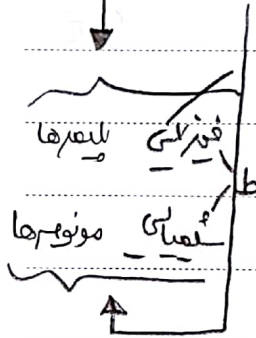 فیزیکی پلیمرها
ط
شیمیایی مونومرها